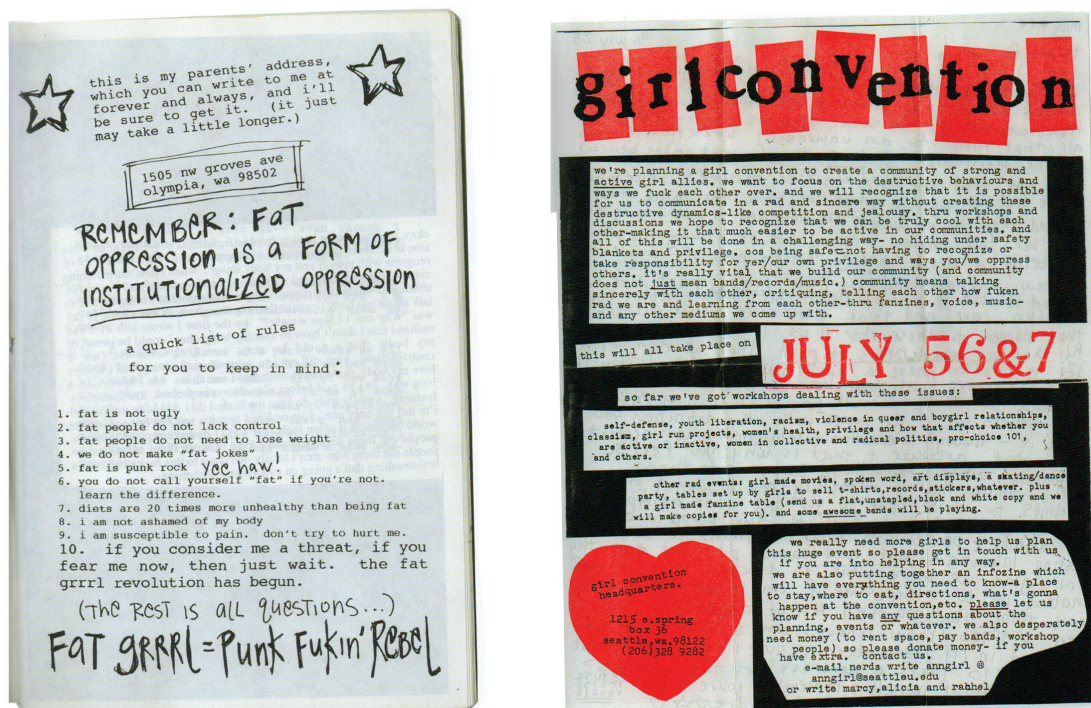 this is my parents' address,
which you can write to me at
forever and always, and i'll
be sure to get it. (it just
may take a little longer.)
1505 nw groves ave
olympia, wa 98502
REMEMBER: FAT
OPPRESSION IS A FORM OF
INSTITUTIONALIZED OPPRESSION
a quick list of rules
for you to keep in mind:
1. fat is not ugly
2. fat people do not lack control
3. fat people do not need to lose weight
4. we do not make "fat jokes"
5. fat is punk rock yee haw!
6. you do not call yourself "fat" if you're not.
learn the difference.
7. diets are 20 times more unhealthy than being fat
8. i am not ashamed of my body
9. i am susceptible to pain. don't try to hurt me.
10. if you consider me a threat, if you
fear me now, then just wait. the fat
grrrl revolution has begun.
(THE REST IS ALL QUESTIONS...)
FAT GRRRL = PUNK FUKIN' REBEL
girlconvention
we're planning a girl convention to create a community of strong and
active girl allies. we want to focus on the destructive behaviours and
ways we fuck each other over. and we will recognize that it is possible
for us to communicate in a rad and sincere way without creating these
destructive dynamics-like competition and jealousy. thru workshops and
discussions we hope to recognize that we can be truly cool with each
other-making it that much easier to be active in our communities. and
all of this will be done in a challenging way- no hiding under safety
blankets and privilege. cos being safe=not having to recognize or
take responsibility for yer/our own privilege and ways you/we oppress
others. it's really vital that we build our community (and community
does not just mean bands/records/music.) community means talking
sincerely with each other, critiquing, telling each other how fuken
rad we are and learning from each other-thru fanzines, voice, music-
and any other mediums we come up with.
this will all take place on
JULY 56&7
so far we've got workshops dealing with these issues:
self-defense, youth liberation, racism, violence in queer and boygirl relationships,
classism, girl run projects, women's health, privilege and how that affects whether you
are active or inactive, women in collective and radical politics, pro-choice 101,
and others.
other rad events: girl made movies, spoken word, art displays, a skating/dance
party, tables set up by girls to sell t-shirts,records,stickers,whatever. plus
a girl made fanzine table (send us a flat,unstapled,black and white copy and we
will make copies for you). and some awesome bands will be playing.
girl convention
headquarters.
1215 e.spring
box 36
seattle,wa.98122
(206)328 9282
we really need more girls to help us plan
this huge event so please get in touch with us
if you are into helping in any way.
we are also putting together an infozine which
will have everything you need to know-a place
to stay,where to eat, directions, what's gonna
happen at the convention,etc. please let us
know if you have any questions about the
planning, events or whatever. we also desperately
need money (to rent space, pay bands, workshop
people) so please donate money- if you
have extra. contact us.
e-mail nerds write anngirl @
anngirl@seattleu.edu
or write marcy,alicia and rahhel